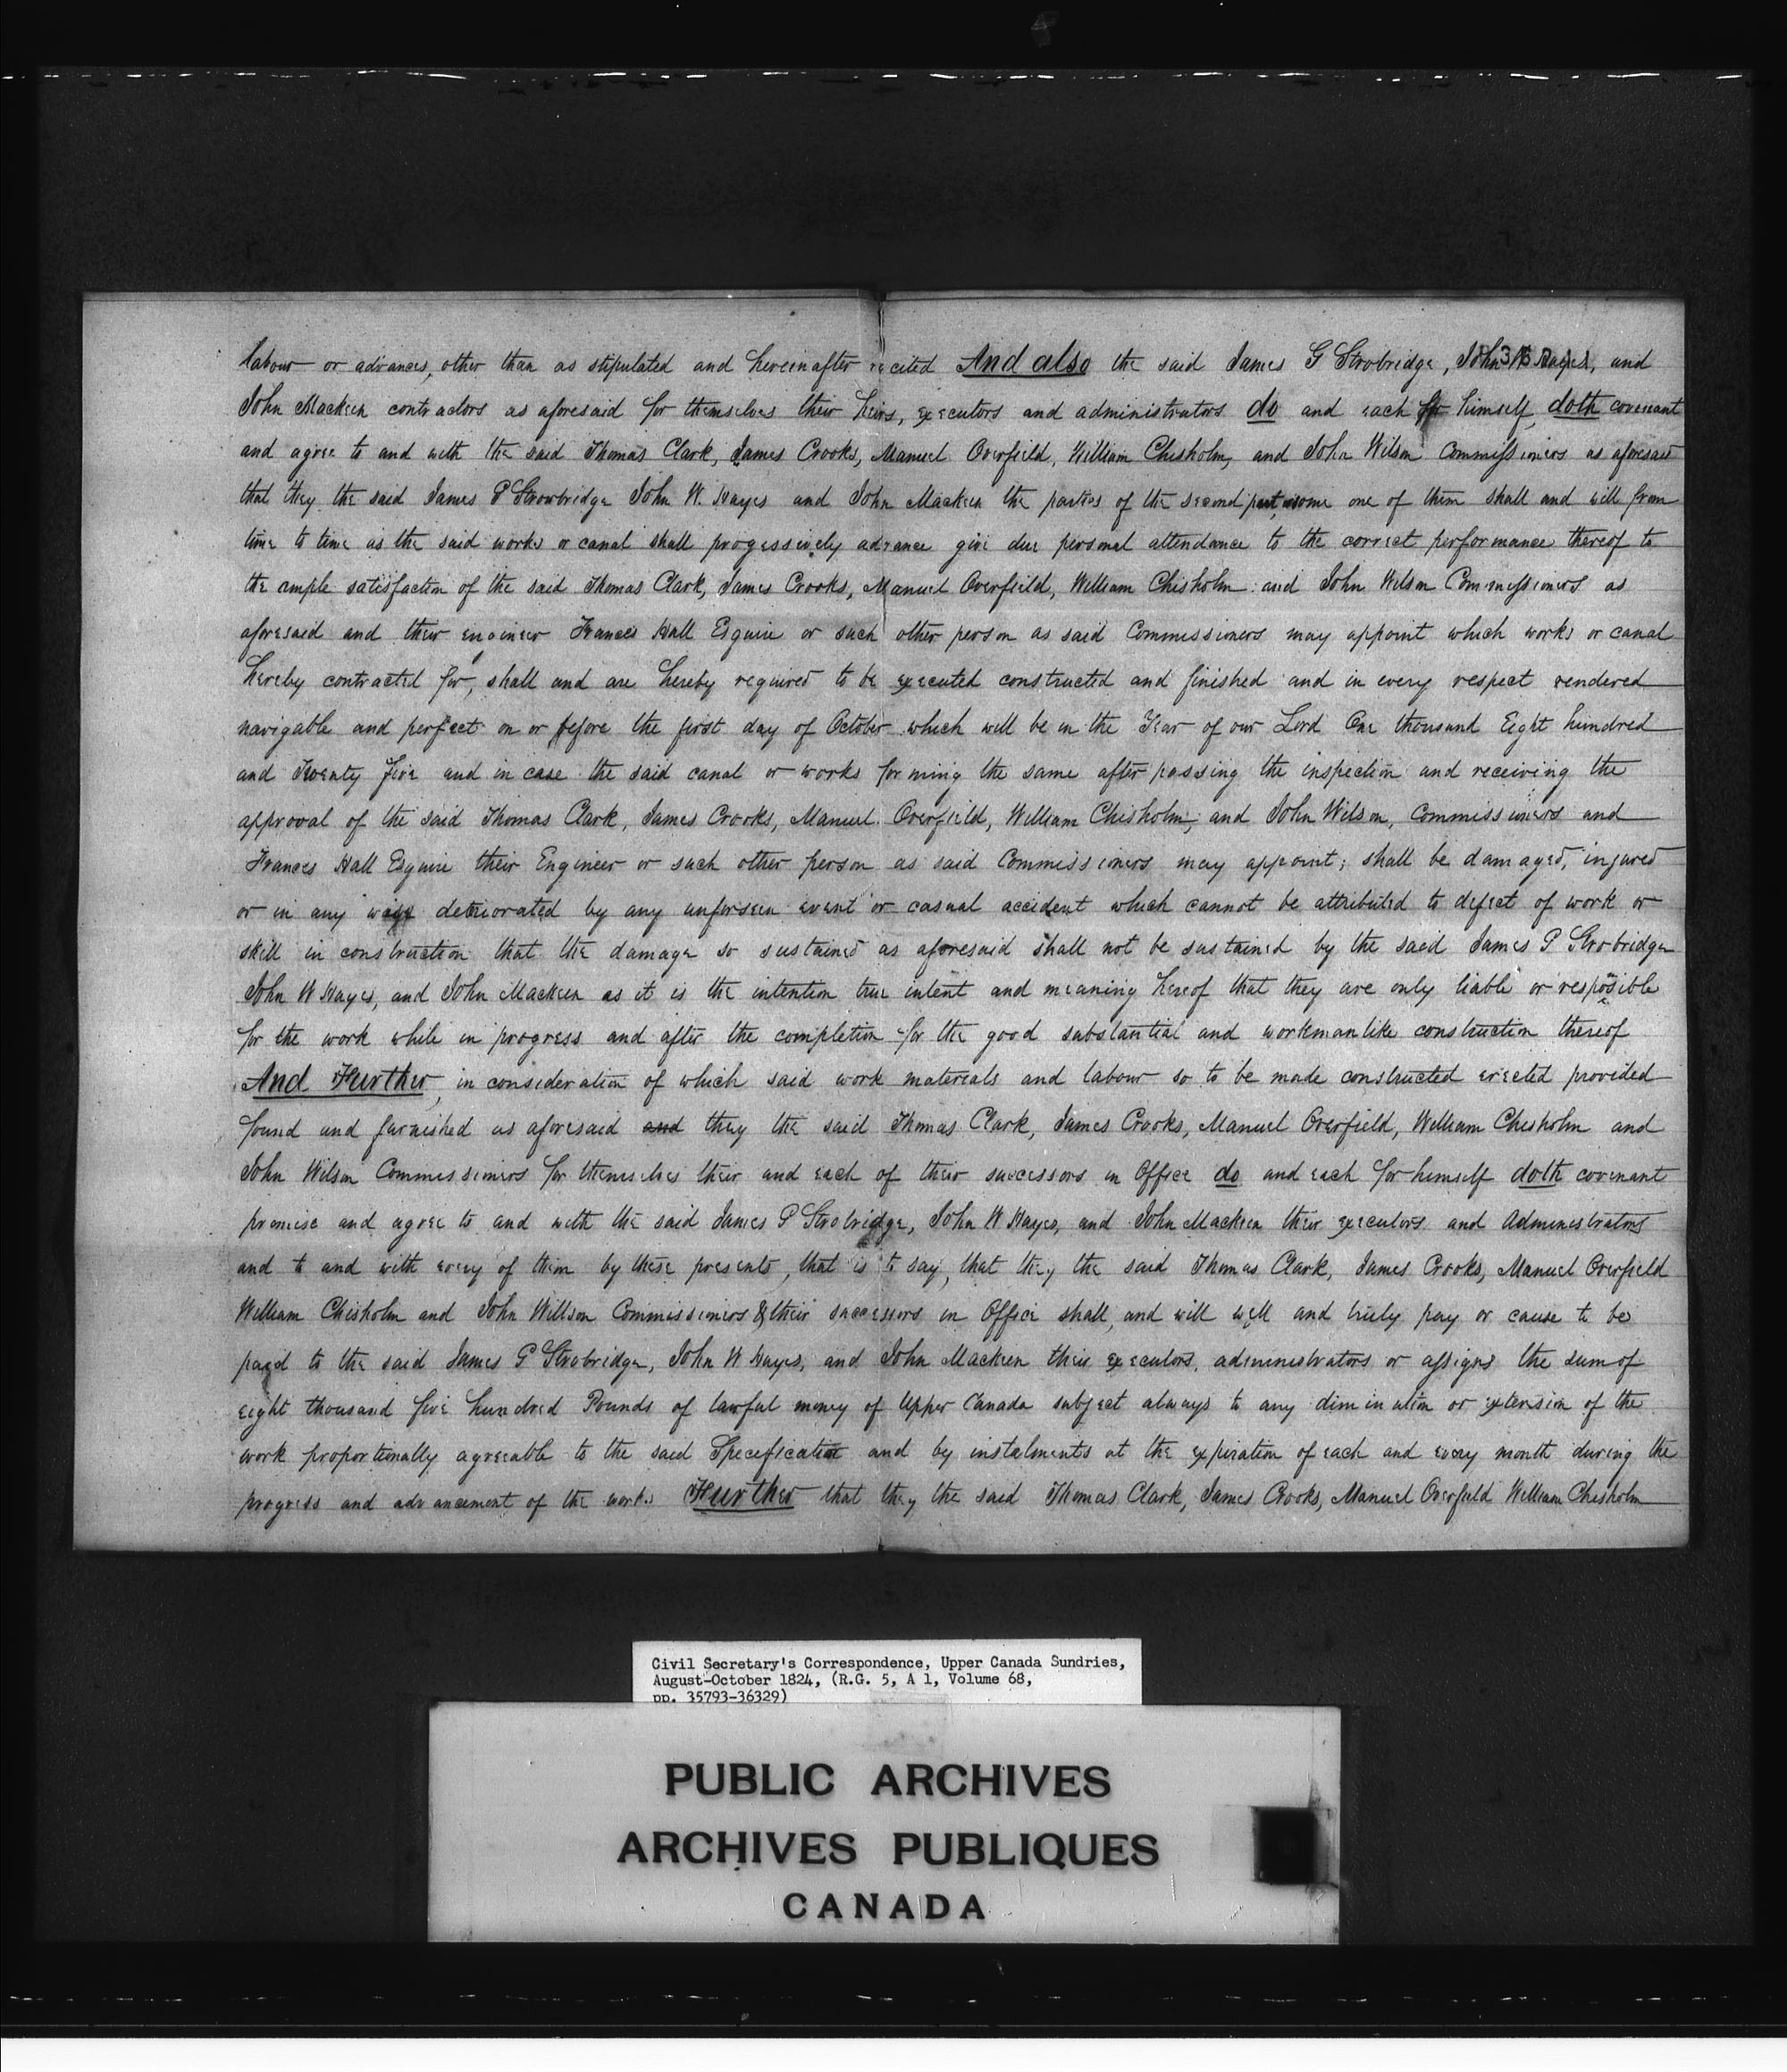 labour or advances, other than as stipulated and hereinafter recited And also the said James G Strobridge, John W Hayes, and
John Mackeen contractors as aforesaid for themselves their heirs, executors and administrators do and each for himself, doth covenant
and agree to and with the said Thomas Clark, James Crooks, Manuel Overfield, William Chisholm, and John Wilson Commissioners as aforesaid
that they the said James P Strowbridge John W. Hayes and John Mackeen the parties of the second part, or some one of them shall and will from
time to time as the said works or canal shall progessively advance give due personal attendance to the correct performance thereof to
the ample satisfaction of the said Thomas Clark, James Crooks, Manuel Overfield, William Chisholm and John Wilson Commissioners as
aforesaid and their engineer Frances Hall Esquire or such other person as said Commissioners may appoint which works or canal
hereby contracted for, shall and are hereby required to be executed constructed and finished and in every respect rendered
navigable and perfect on or before the first day of October which will be in the Year of our Lord One thousand Eight hundred
and Twenty five and in case the said canal or works forming the same after passing the inspection and receiving the
approval of the said Thomas Clark, James Crooks, Manuel Overfield, William Chisholm, and John Wilson, Commissioners and
Frances Hall Esquire their Engineer or such other person as said Commissioners may appoint; shall be damaged, injured
or in any ways deteriorated by any unforseen event or casual accident which cannot be attributed to defect of work or
skill in construction that the damage so sustained as aforesaid shall not be sustained by the said James P Strobridge
John W Hayes, and John Mackeen as it is the intention true intent and meaning hereof that they are only liable or resposible
for the work while in progress and after the completion for the good substantial and workmanlike construction thereof
And Further, in consideration of which said work materials and labour so to be made constructed erected provided
found and furnished as aforesaid and they the said Thomas Clark, James Crooks, Manuel Overfield, William Chisholm and
John Wilson Commissioners for themselves their and each of their successors in Office do and each for himself doth covenant
promise and agree to and with the said James P Strobridge, John W Hayes, and John Mackeen their executors and Administrators
and to and with every of them by these presents, that is to say, that they the said Thomas Clark, James Crooks, Manuel Overfield
William Chisholm and John Willson Commissioners & their successors in Office shall, and will well and truly pay or cause to be
paid to the said James P Strobridge, John W Hayes, and John Mackeen their executors, administrators or assigns the sum of
eight thousand five hundred Pounds of lawful money of Upper Canada subject always to any diminution or extension of the
work proportionally agreeable to the said Specification and by instalments at the expiration of each and every month during the
progress and advancement of the works Further that they the said Thomas Clark, James Crooks, Manuel Overfield William Chisholm
Civil Secretary's Correspondence, Upper Canada Sundries,
August-October 1824, (R.G. 5, A 1, Volume 68,
pp. 35793-36329)
PUBLIC ARCHIVES
ARCHIVES PUBLIQUES
CANADA